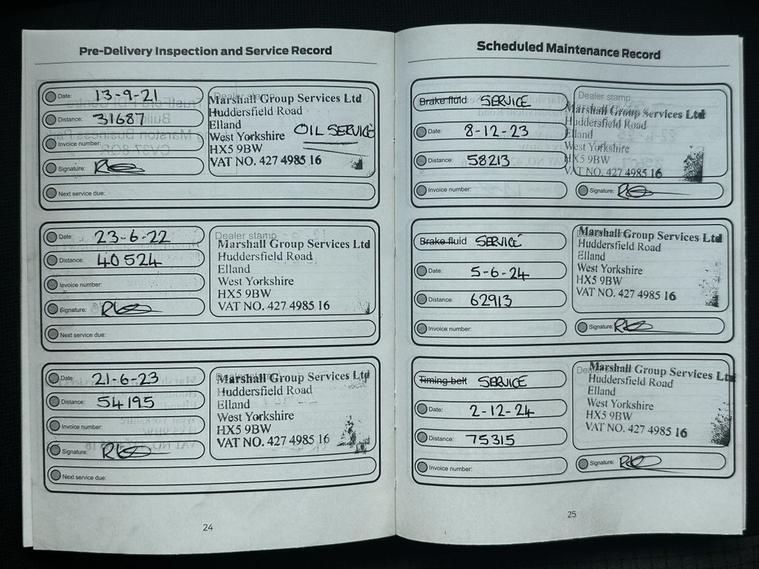 Pre-Delivery Inspection and Service Record
Date: 13-9-21
Distance: 31687
Invoice number:
Signature:
Next service due:
Dealer stamp
Marshall Group Services Ltd
Huddersfield Road
Elland
West Yorkshire
HX5 9BW
VAT NO. 427 4985 16
OIL SERVICE
Date: 23-6-22
Distance: 40524
Invoice number:
Signature:
Next service due:
Dealer stamp
Marshall Group Services Ltd
Huddersfield Road
Elland
West Yorkshire
HX5 9BW
VAT NO. 427 4985 16
Date: 21-6-23
Distance: 54195
Invoice number:
Signature:
Next service due:
Marshall Group Services Ltd
Huddersfield Road
Elland
West Yorkshire
HX5 9BW
VAT NO. 427 4985 16
24
Scheduled Maintenance Record
Brake fluid SERVICE
Date: 8-12-23
Distance: 58213
Invoice number:
Dealer stamp
Marshall Group Services Ltd
Huddersfield Road
Elland
West Yorkshire
HX5 9BW
VAT NO. 427 4985 16
Signature:
Brake fluid SERVICE
Date: 5-6-24
Distance: 62913
Invoice number:
Marshall Group Services Ltd
Huddersfield Road
Elland
West Yorkshire
HX5 9BW
VAT NO. 427 4985 16
Signature:
Timing belt SERVICE
Date: 2-12-24
Distance: 75315
Invoice number:
Marshall Group Services Ltd
Huddersfield Road
Elland
West Yorkshire
HX5 9BW
VAT NO. 427 4985 16
Signature:
25